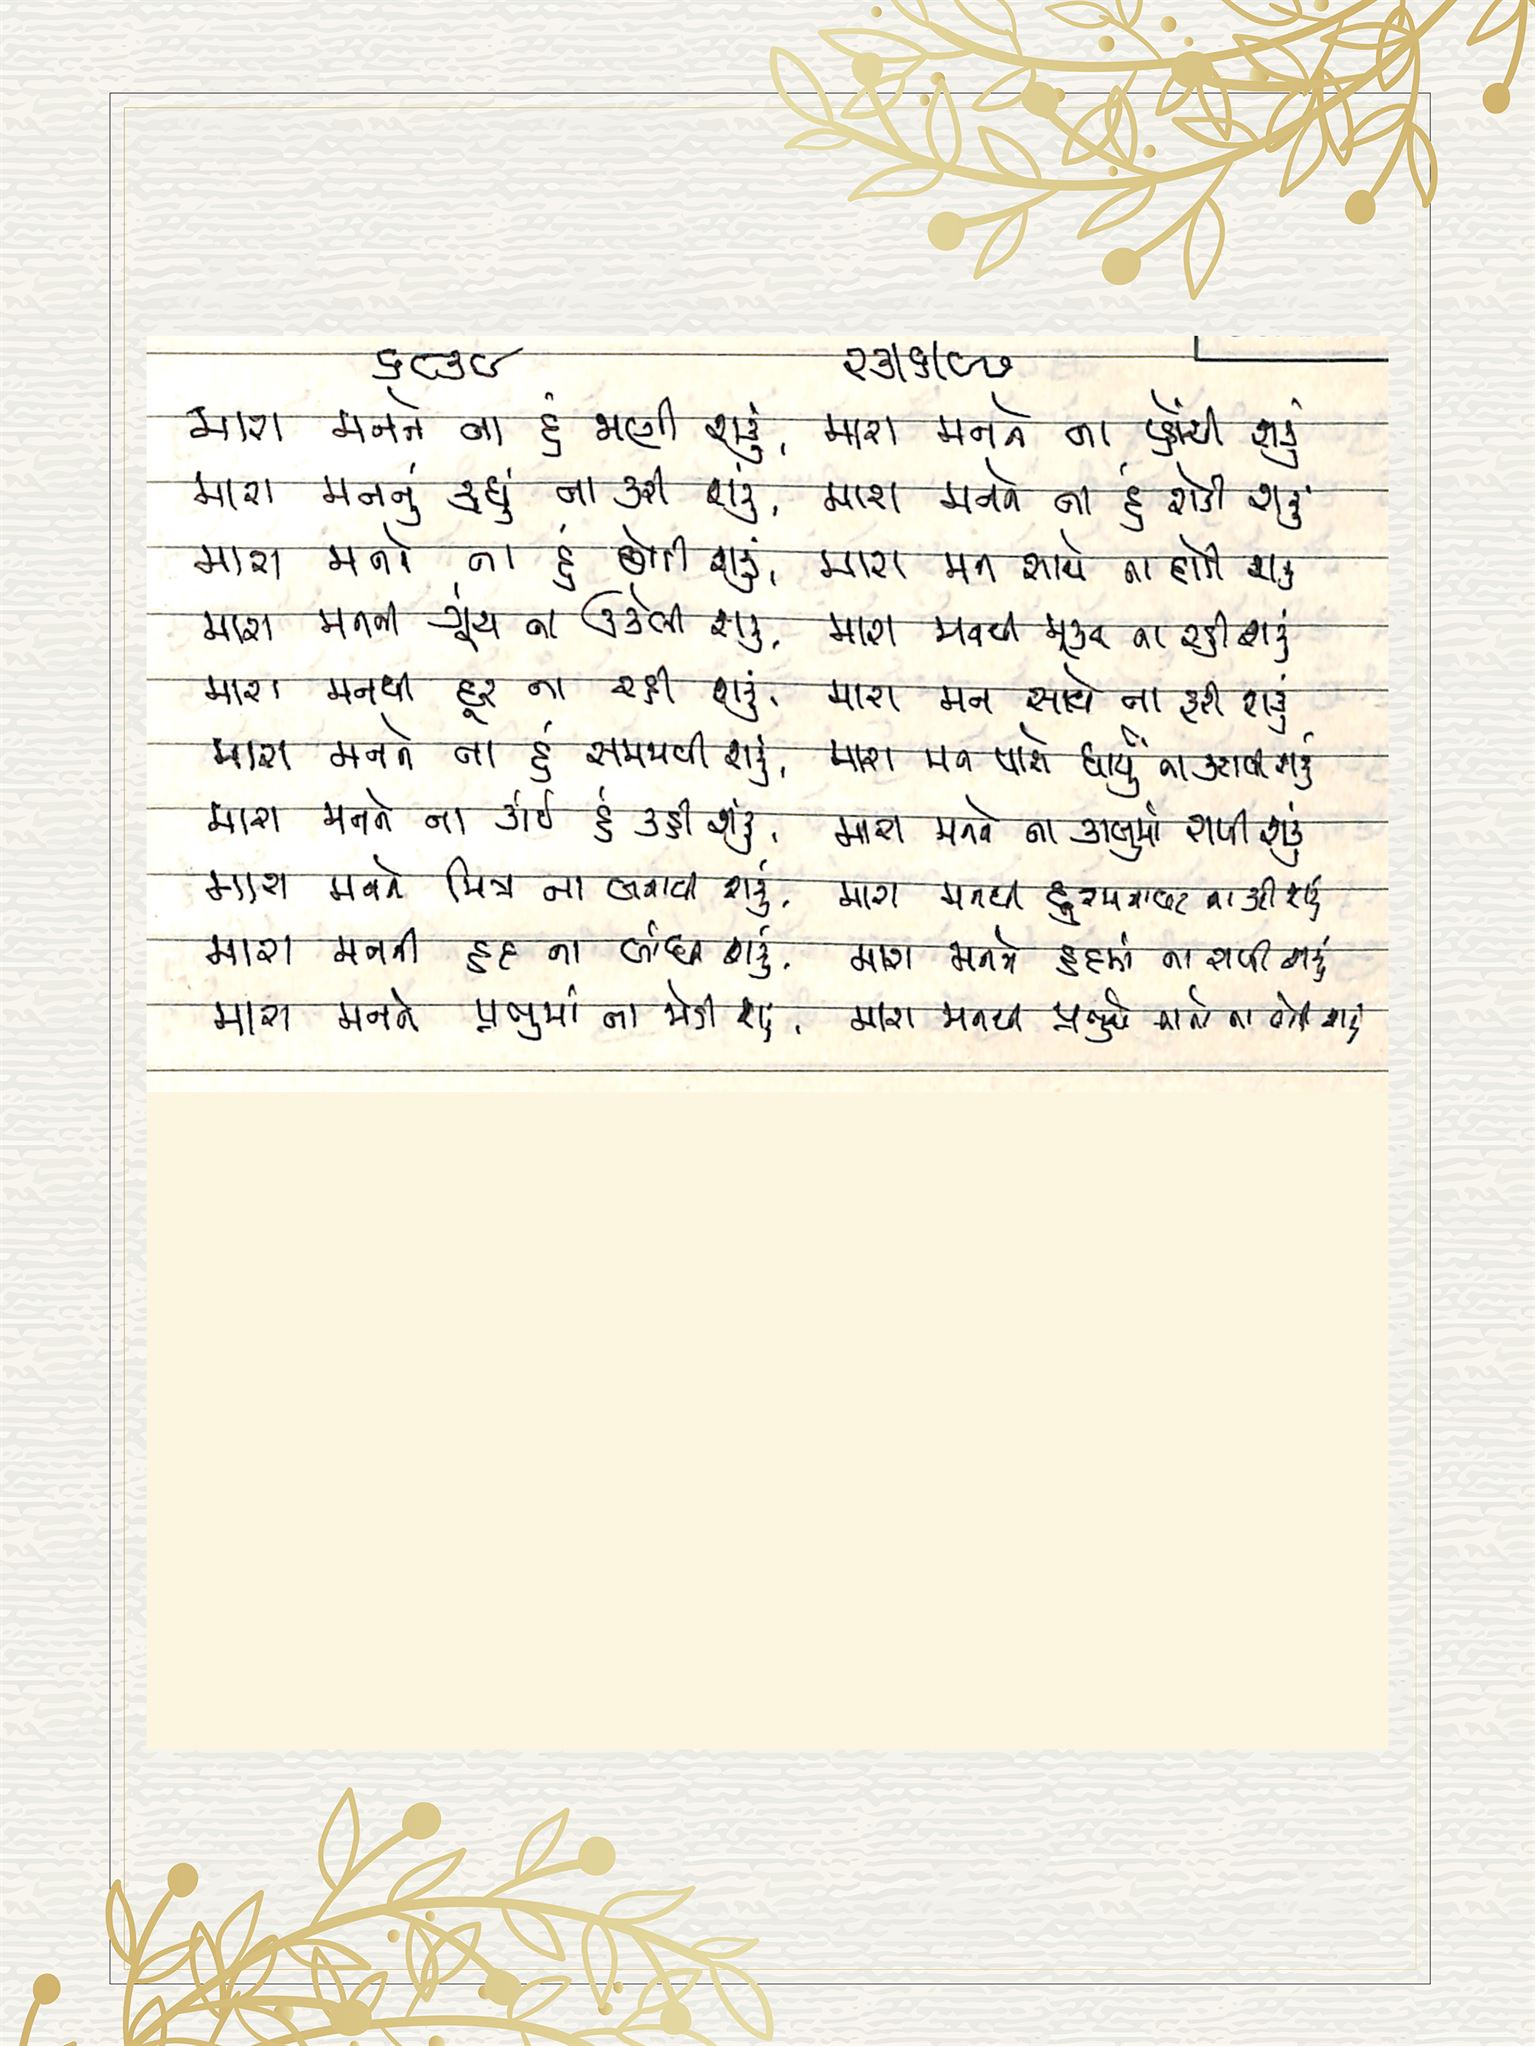 મારા મનને ના હું ભણી શકું, મારા મનને ના પ્હોંચી શકું
મારા મનનું કીધું ના કરી શકું, મારા મનને ના હું રોકી શકું
મારા મનને ના હું છોડી શકું, મારા મન સાથે ના શકું
મારા મનની ગૂંચ ના ઉકેલી શકું, મારા મનથી મૂક્ત ના રહી શકું
મારા મનથી દૂર ના રહી શકું, મારા મન સાથે ના ફરી શકું
મારા મનને ના હું સમજાવી શકું, મારા મન પાસે ધાર્યું ના કરાવી શકું
મારા મનને ના કાંઈ હું કહી શકું, મારા મનને ના કાબુમાં રાખી શકું
મારા મનને મિત્ર ના બનાવી શકું, મારા મનથી દુશ્મનાવટ ના કરી શકું
મારા મનની હદ ના બાંધી શકું, મારા મનને હદમાં ના રાખી શકું
મારા મનને પ્રભુમાં ના જોડી શકું, મારા મનથી પ્રભુ ના શકું